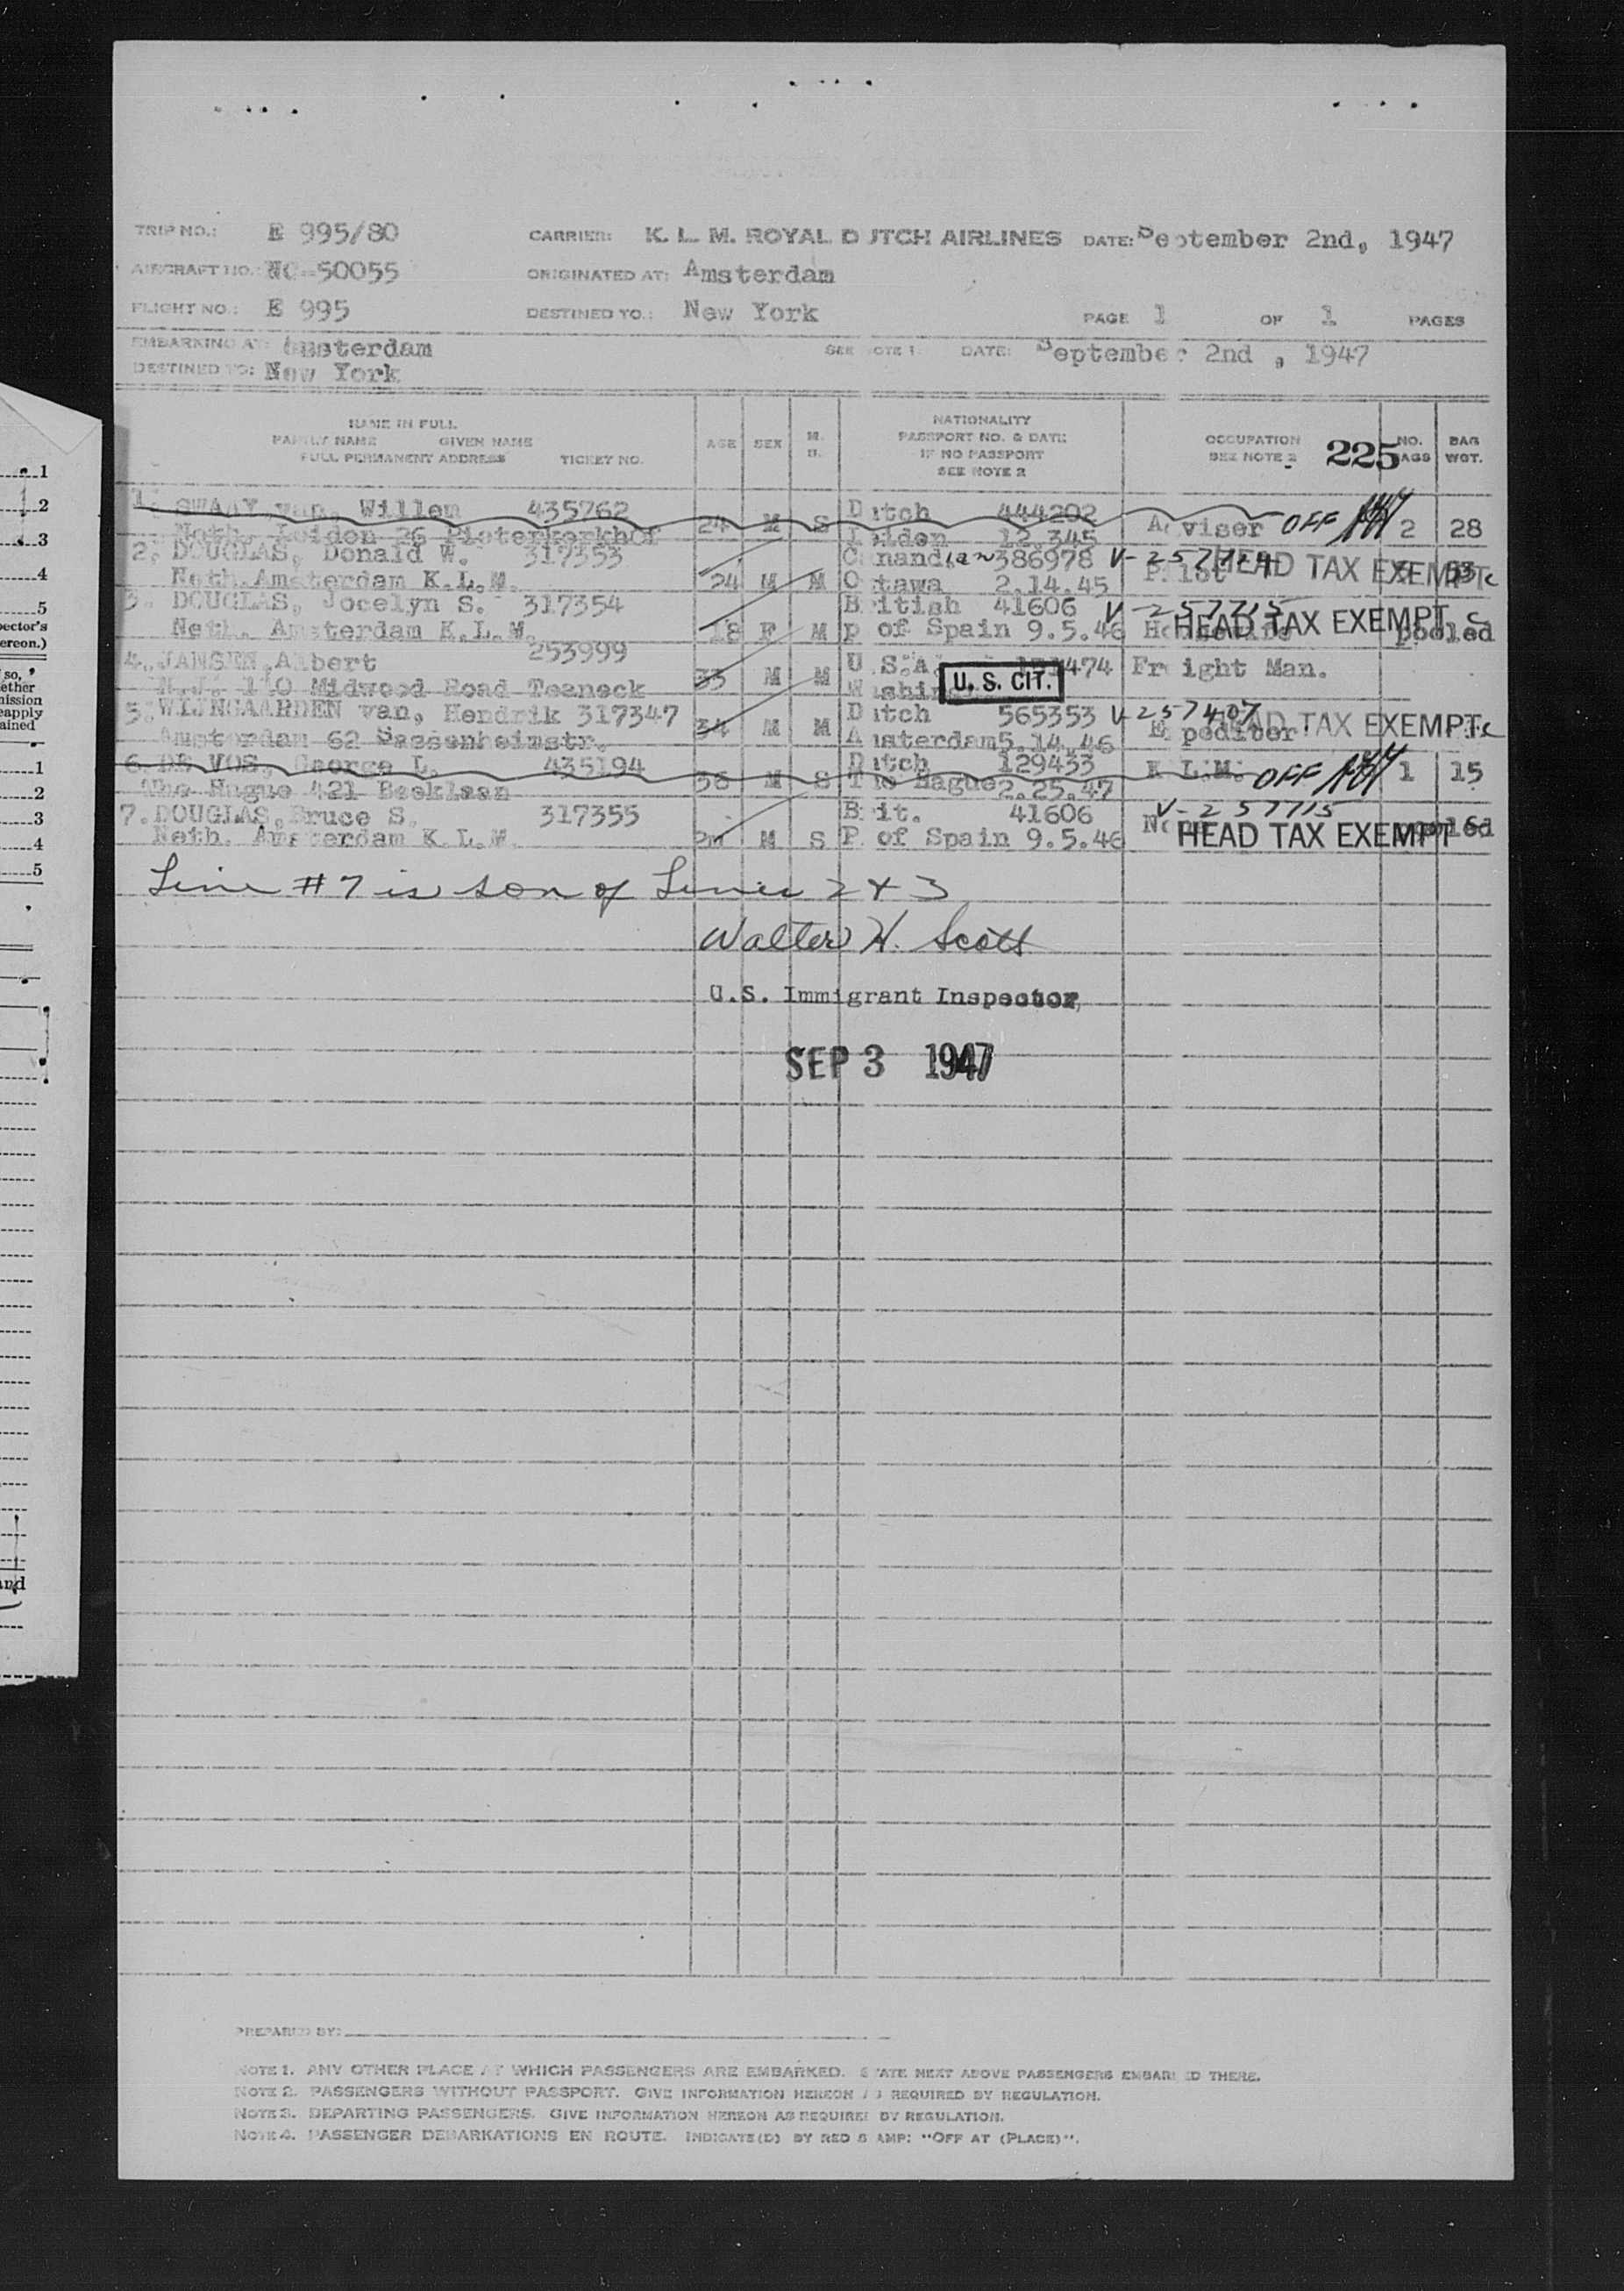 TRIP NO.: E 995/80 CARRIER: K. L. M. ROYAL DUTCH AIRLINES DATE: September 2nd, 1947
AIRCRAFT NO.: NC-50055 ORIGINATED AT: Amsterdam
FLIGHT NO.: E 995 DESTINED TO.: New York PAGE 1 OF 1 PAGES
EMBARKING AT: Amsterdam SEE NOTE 1. DATE: September 2nd , 1947
DESTINED TO: New York
NAME IN FULL
FAMILY NAME GIVEN NAME
FULL PERMANENT ADDRESS TICKET NO.
AGE SEX M. NATIONALITY
PASSPORT NO. & DATE
IF NO PASSPORT
SEE NOTE 2
OCCUPATION
SEE NOTE 2 225 NO. BAGS BAG WGT.
1. SWAAY, van, Willem 435762 24 M S Dutch 444202 Adviser OFF 2 28
Neth. Leiden 26 Pieterkerkhof Leiden 12.345
2. DOUGLAS, Donald W. 317353 24 M M Canandian 386978 Pilot HEAD TAX EXEMPT
Neth. Amsterdam K.L.M. Ottawa 2.14.45
3. DOUGLAS, Jocelyn S. 317354 18 F M British 41606 V-257715 HEAD TAX EXEMPT
Neth. Amsterdam K.L.M. P of Spain 9.5.46 Housewife pooled
4. JANSEN, Albert 253999 33 M M U.S.A. Freight Man.
N.J. 110 Midwood Road Teaneck U. S. CIT.
5. WIJNGAARDEN van, Hendrik 317347 34 M M Dutch 565353 V-257407 HEAD TAX EXEMPT
Amsterdam 62 Sassenheimstr. Amsterdam 5.14.46 Expeditor
6. DE VOS, George L. 435194 56 M S Dutch 129433 K.L.M. OFF 1 15
The Hague 421 Beeklaan The Hague 2.25.47
7. DOUGLAS, Bruce S. 317355 2m M S Brit. 41606 V-257715
Neth. Amsterdam K.L.M. P. of Spain 9.5.46 HEAD TAX EXEMPT pooled
Line #7 is son of Lines 2 & 3
Walter H. Scott
U.S. Immigrant Inspector
SEP 3 1947
PREPARED BY:
NOTE 1. ANY OTHER PLACE AT WHICH PASSENGERS ARE EMBARKED. STATE NEXT ABOVE PASSENGERS EMBARKED THERE.
NOTE 2. PASSENGERS WITHOUT PASSPORT. GIVE INFORMATION HEREON AS REQUIRED BY REGULATION.
NOTE 3. DEPARTING PASSENGERS. GIVE INFORMATION HEREON AS REQUIRED BY REGULATION.
NOTE 4. PASSENGER DEBARKATIONS EN ROUTE. INDICATE(D) BY RED STAMP: "OFF AT (PLACE)".